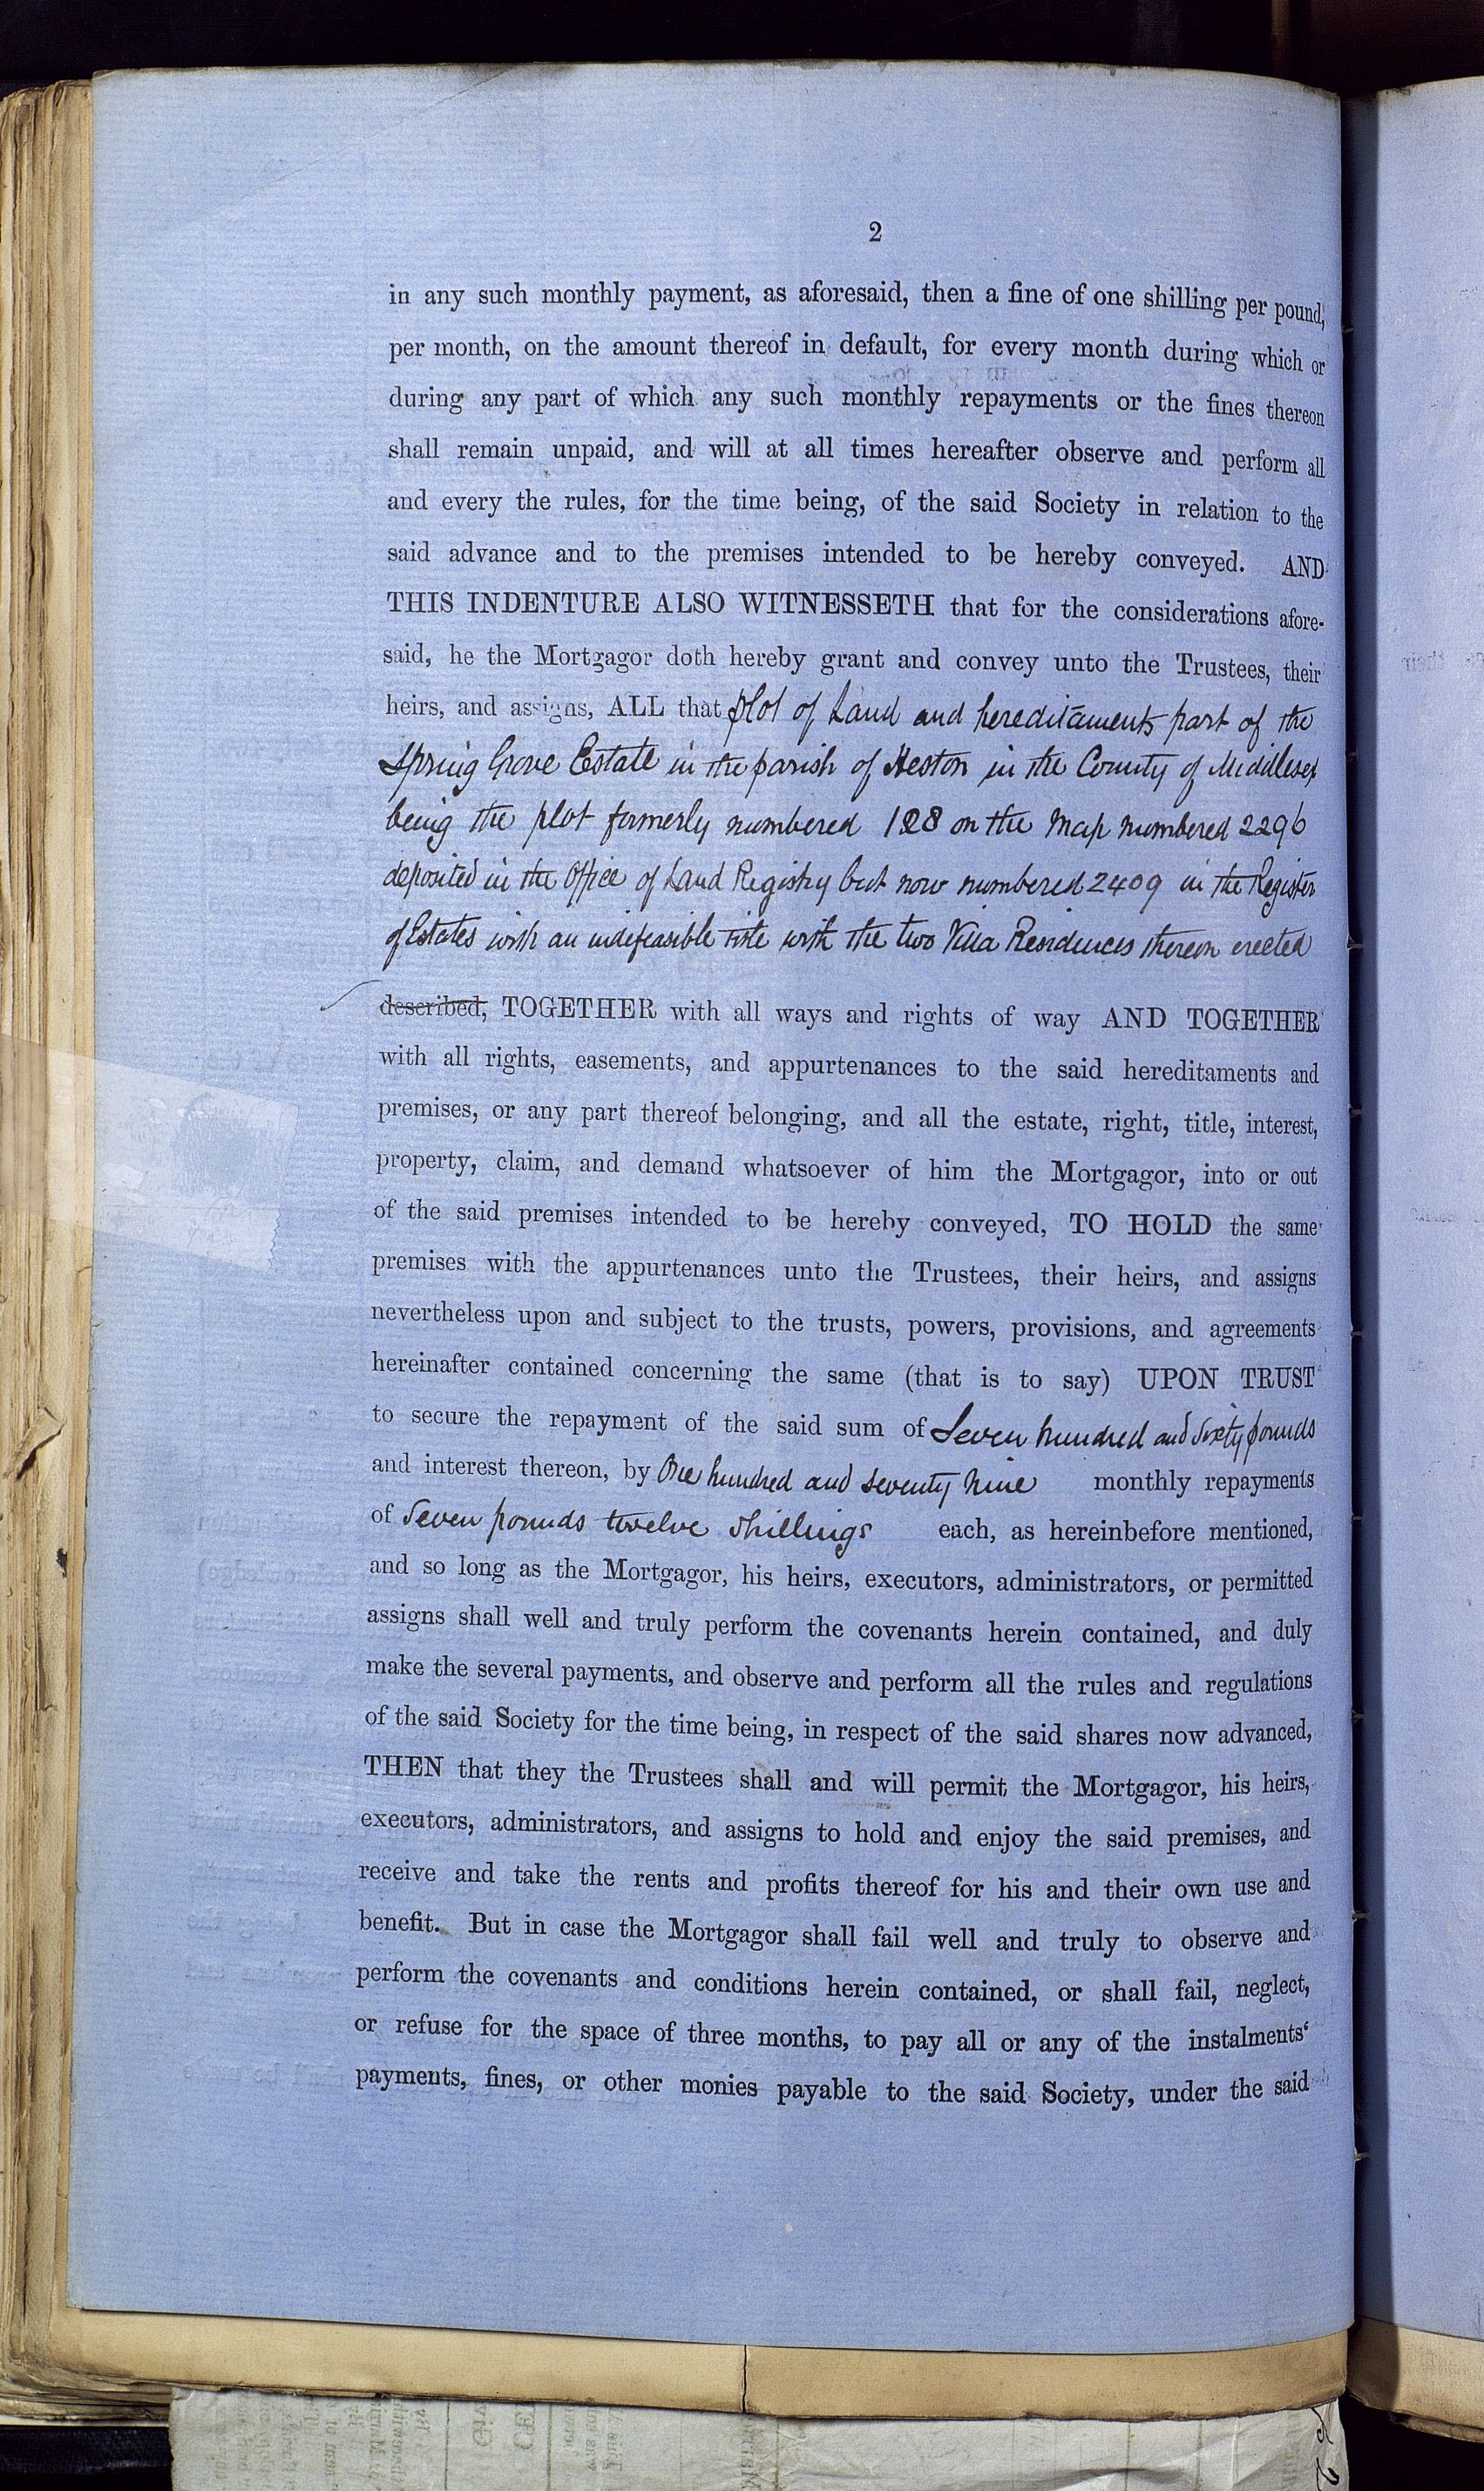 2
in any such monthly payment, as aforesaid, then a fine of one shilling per pound,
per month, on the amount thereof in default, for every month during which or
during any part of which any such monthly repayments or the fines thereon
shall remain unpaid, and will at all times hereafter observe and perform all
and every the rules, for the time being, of the said Society in relation to the
said advance and to the premises intended to be hereby conveyed. AND
THIS INDENTURE ALSO WITNESSETH that for the considerations afore-
said, he the Mortgagor doth hereby grant and convey unto the Trustees, their
heirs, and assigns, ALL that plot of Land and hereditaments part of the
Spring Grove Estate in the parish of Heston in the County of Middlesex
being the plot formerly numbered 128 on the Map numbered 2296
deposited in the Office of Land Registry but now numbered 2409 in the Register
of Estates with an indefeasible title with the two Villa Residences thereon erected
described, TOGETHER with all ways and rights of way AND TOGETHER
with all rights, easements, and appurtenances to the said hereditaments and
premises, or any part thereof belonging, and all the estate, right, title, interest,
property, claim, and demand whatsoever of him the Mortgagor, into or out
of the said premises intended to be hereby conveyed, TO HOLD the same
premises with the appurtenances unto the Trustees, their heirs, and assigns
nevertheless upon and subject to the trusts, powers, provisions, and agreements
hereinafter contained concerning the same (that is to say) UPON TRUST
to secure the repayment of the said sum of Seven hundred and Sixty pounds
and interest thereon, by One hundred and seventy nine monthly repayments
of Seven pounds twelve shillings each, as hereinbefore mentioned,
and so long as the Mortgagor, his heirs, executors, administrators, or permitted
assigns shall well and truly perform the covenants herein contained, and duly
make the several payments, and observe and perform all the rules and regulations
of the said Society for the time being, in respect of the said shares now advanced,
THEN that they the Trustees shall and will permit the Mortgagor, his heirs,
executors, administrators, and assigns to hold and enjoy the said premises, and
receive and take the rents and profits thereof for his and their own use and
benefit. But in case the Mortgagor shall fail well and truly to observe and
perform the covenants and conditions herein contained, or shall fail, neglect,
or refuse for the space of three months, to pay all or any of the instalments'
payments, fines, or other monies payable to the said Society, under the said